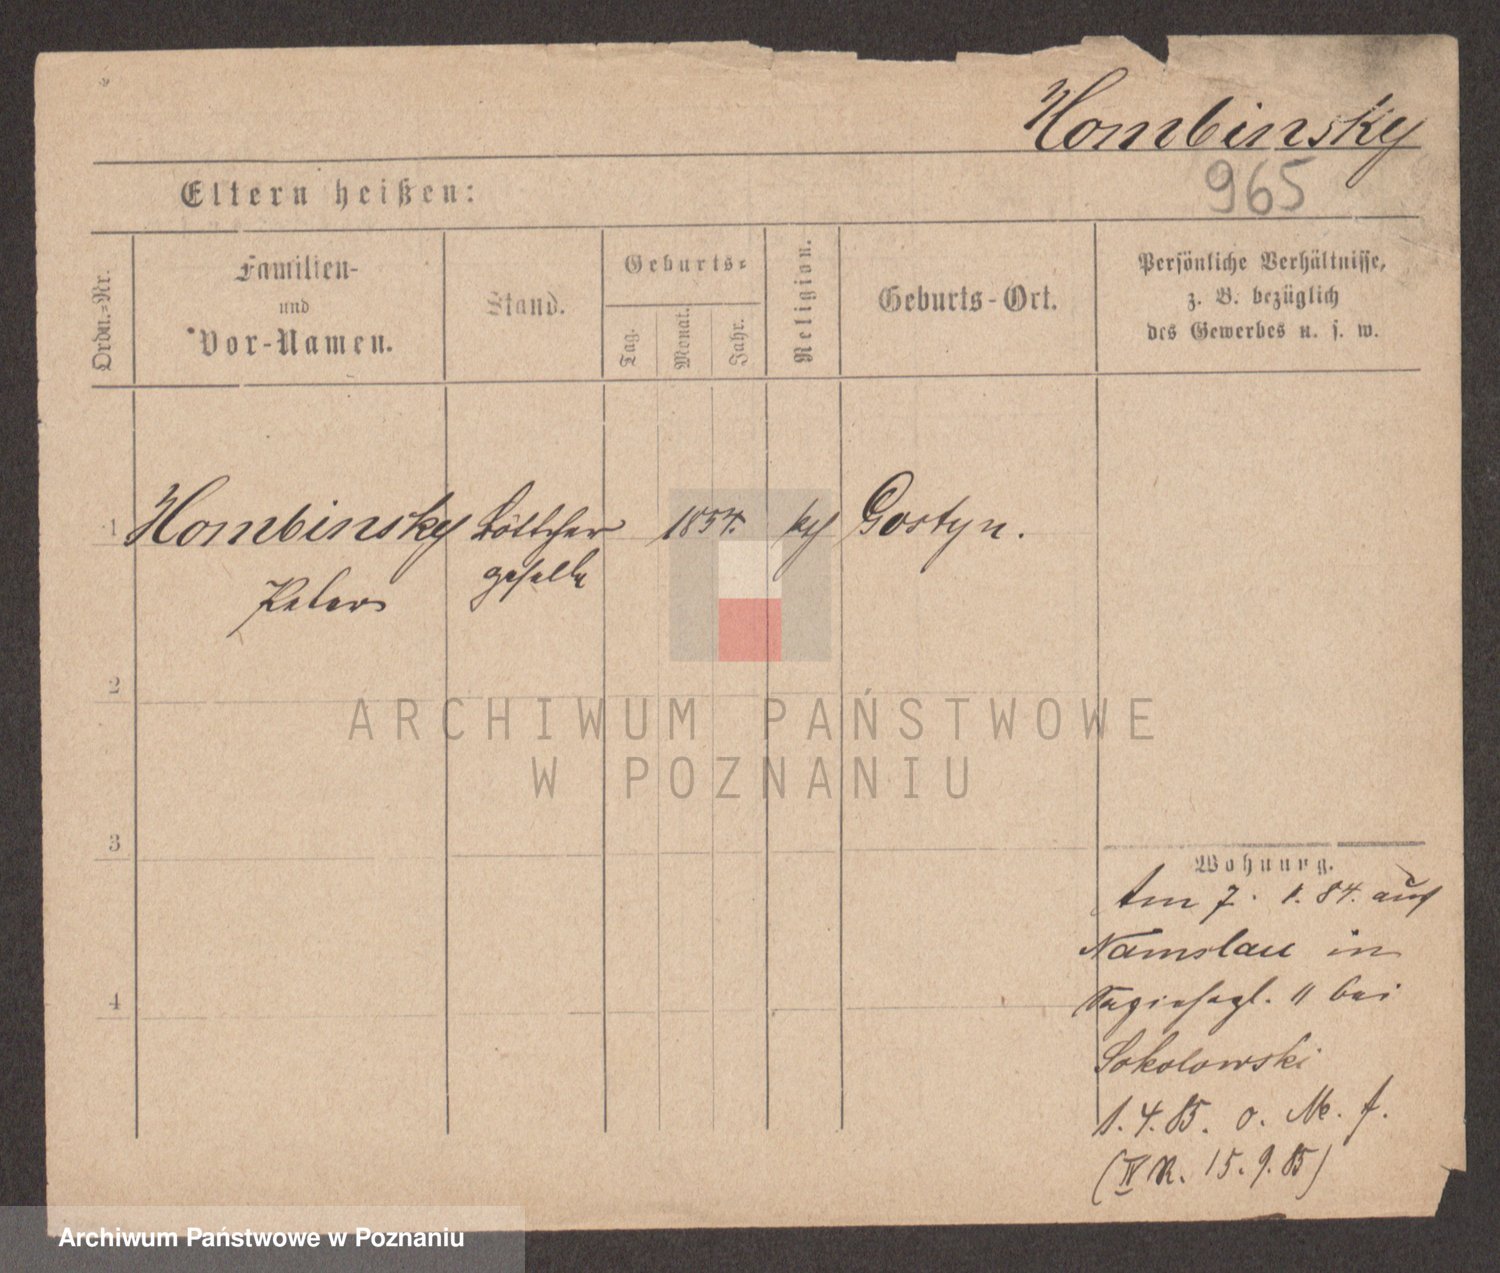 Hombinsky
965
Eltern heißen:
Ordn.-Nr.
Familien-
und
Vor-Namen.
Stand.
Geburts-
Tag.
Monat.
Jahr.
Religion.
Geburts-Ort.
Persönliche Verhältnisse,
z. B. bezüglich
des Gewerbes u. s. w.
1 Hombinsky Böttcher 1854. kth Gostyn.
Peter geselle
2
ARCHIWUM PAŃSTWOWE
W POZNANIU
3
Wohnung.
Am 7. 1. 84. aus
Namslau in
4
11 bei
Sokolowski
1. 4. 85. o. M. f.
(IV R. 15. 9. 85)
Archiwum Państwowe w Poznaniu